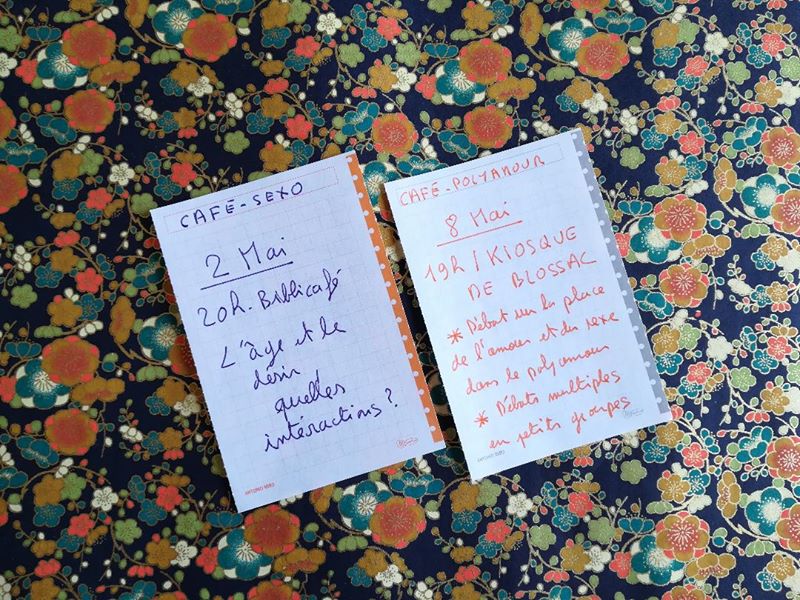 CAFÉ-SEXO
2 Mai
20h. Biblicafé
L'âge et le
désir,
quelles
intéractions?
ANTONIO MIRO
CAFÉ-POLYAMOUR
8 Mai
19h / KIOSQUE
DE BLOSSAC
* Débat sur la place
de l'amour et du sexe
dans le polyamour
* Débats multiples
en petits groupes
ANTONIO MIRO